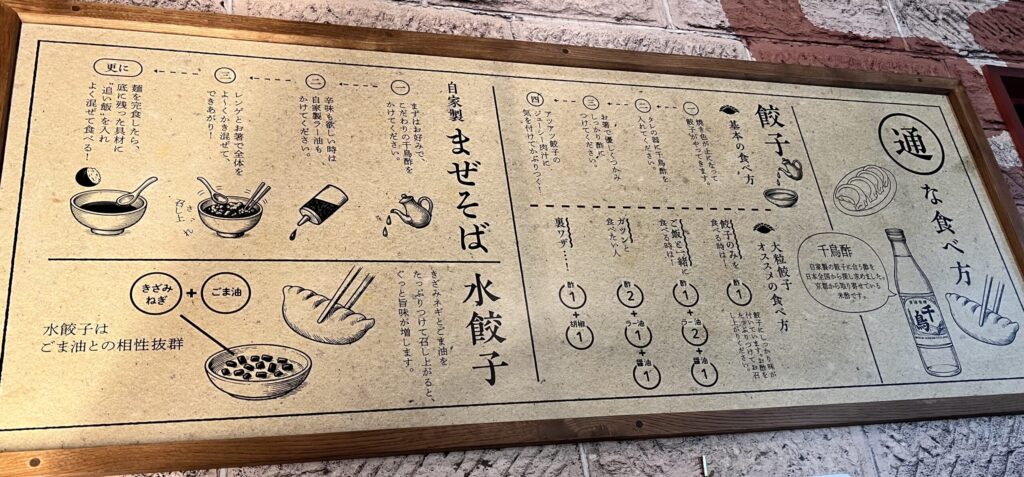 通な食べ方
千鳥酢
自家製の餃子に合う酢を
日本全国から探し求めました。
京都から取り寄せている
米酢です。
千鳥
餃子
基本の食べ方
一
焼き色が上になって
餃子がやってきます。
二
タレの器に千鳥酢を
入れてください。
三
お箸で優しくつかみ
しっかり酢を
つけてください。
四
アツアツ餃子の
ジューシー肉汁に
気を付けてかぶりつく!
大粒餃子
オススメの食べ方
餃子のみを
食べる時は!
酢1
餃子にしっかり味が
付いています。お酢を
たっぷりつけてお召
し上がりください。
ご飯と一緒に
食べる時は!
酢1
+
ラー油2
+
醤油1
ガツンと
食べたい人
酢2
+
ラー油1
+
醤油1
裏ワザ…!
酢1
+
胡椒1
自家製
まぜそば
一
まずはお好みで、
こだわりの千鳥酢を
かけてください。
二
辛味も欲しい時は
自家製ラー油も
かけてください。
三
レンゲとお箸で全体を
よ〜くかき混ぜて、
できあがり!
召し上がれ
更に
麺を完食したら、
底に残った具材に
"追い飯"を入れ
よく混ぜて食べる!
水餃子
きざみネギとごま油を
たっぷりつけて召し上がると、
ぐっと旨味が増します。
きざみ
ねぎ
+
ごま油
水餃子は
ごま油との相性抜群